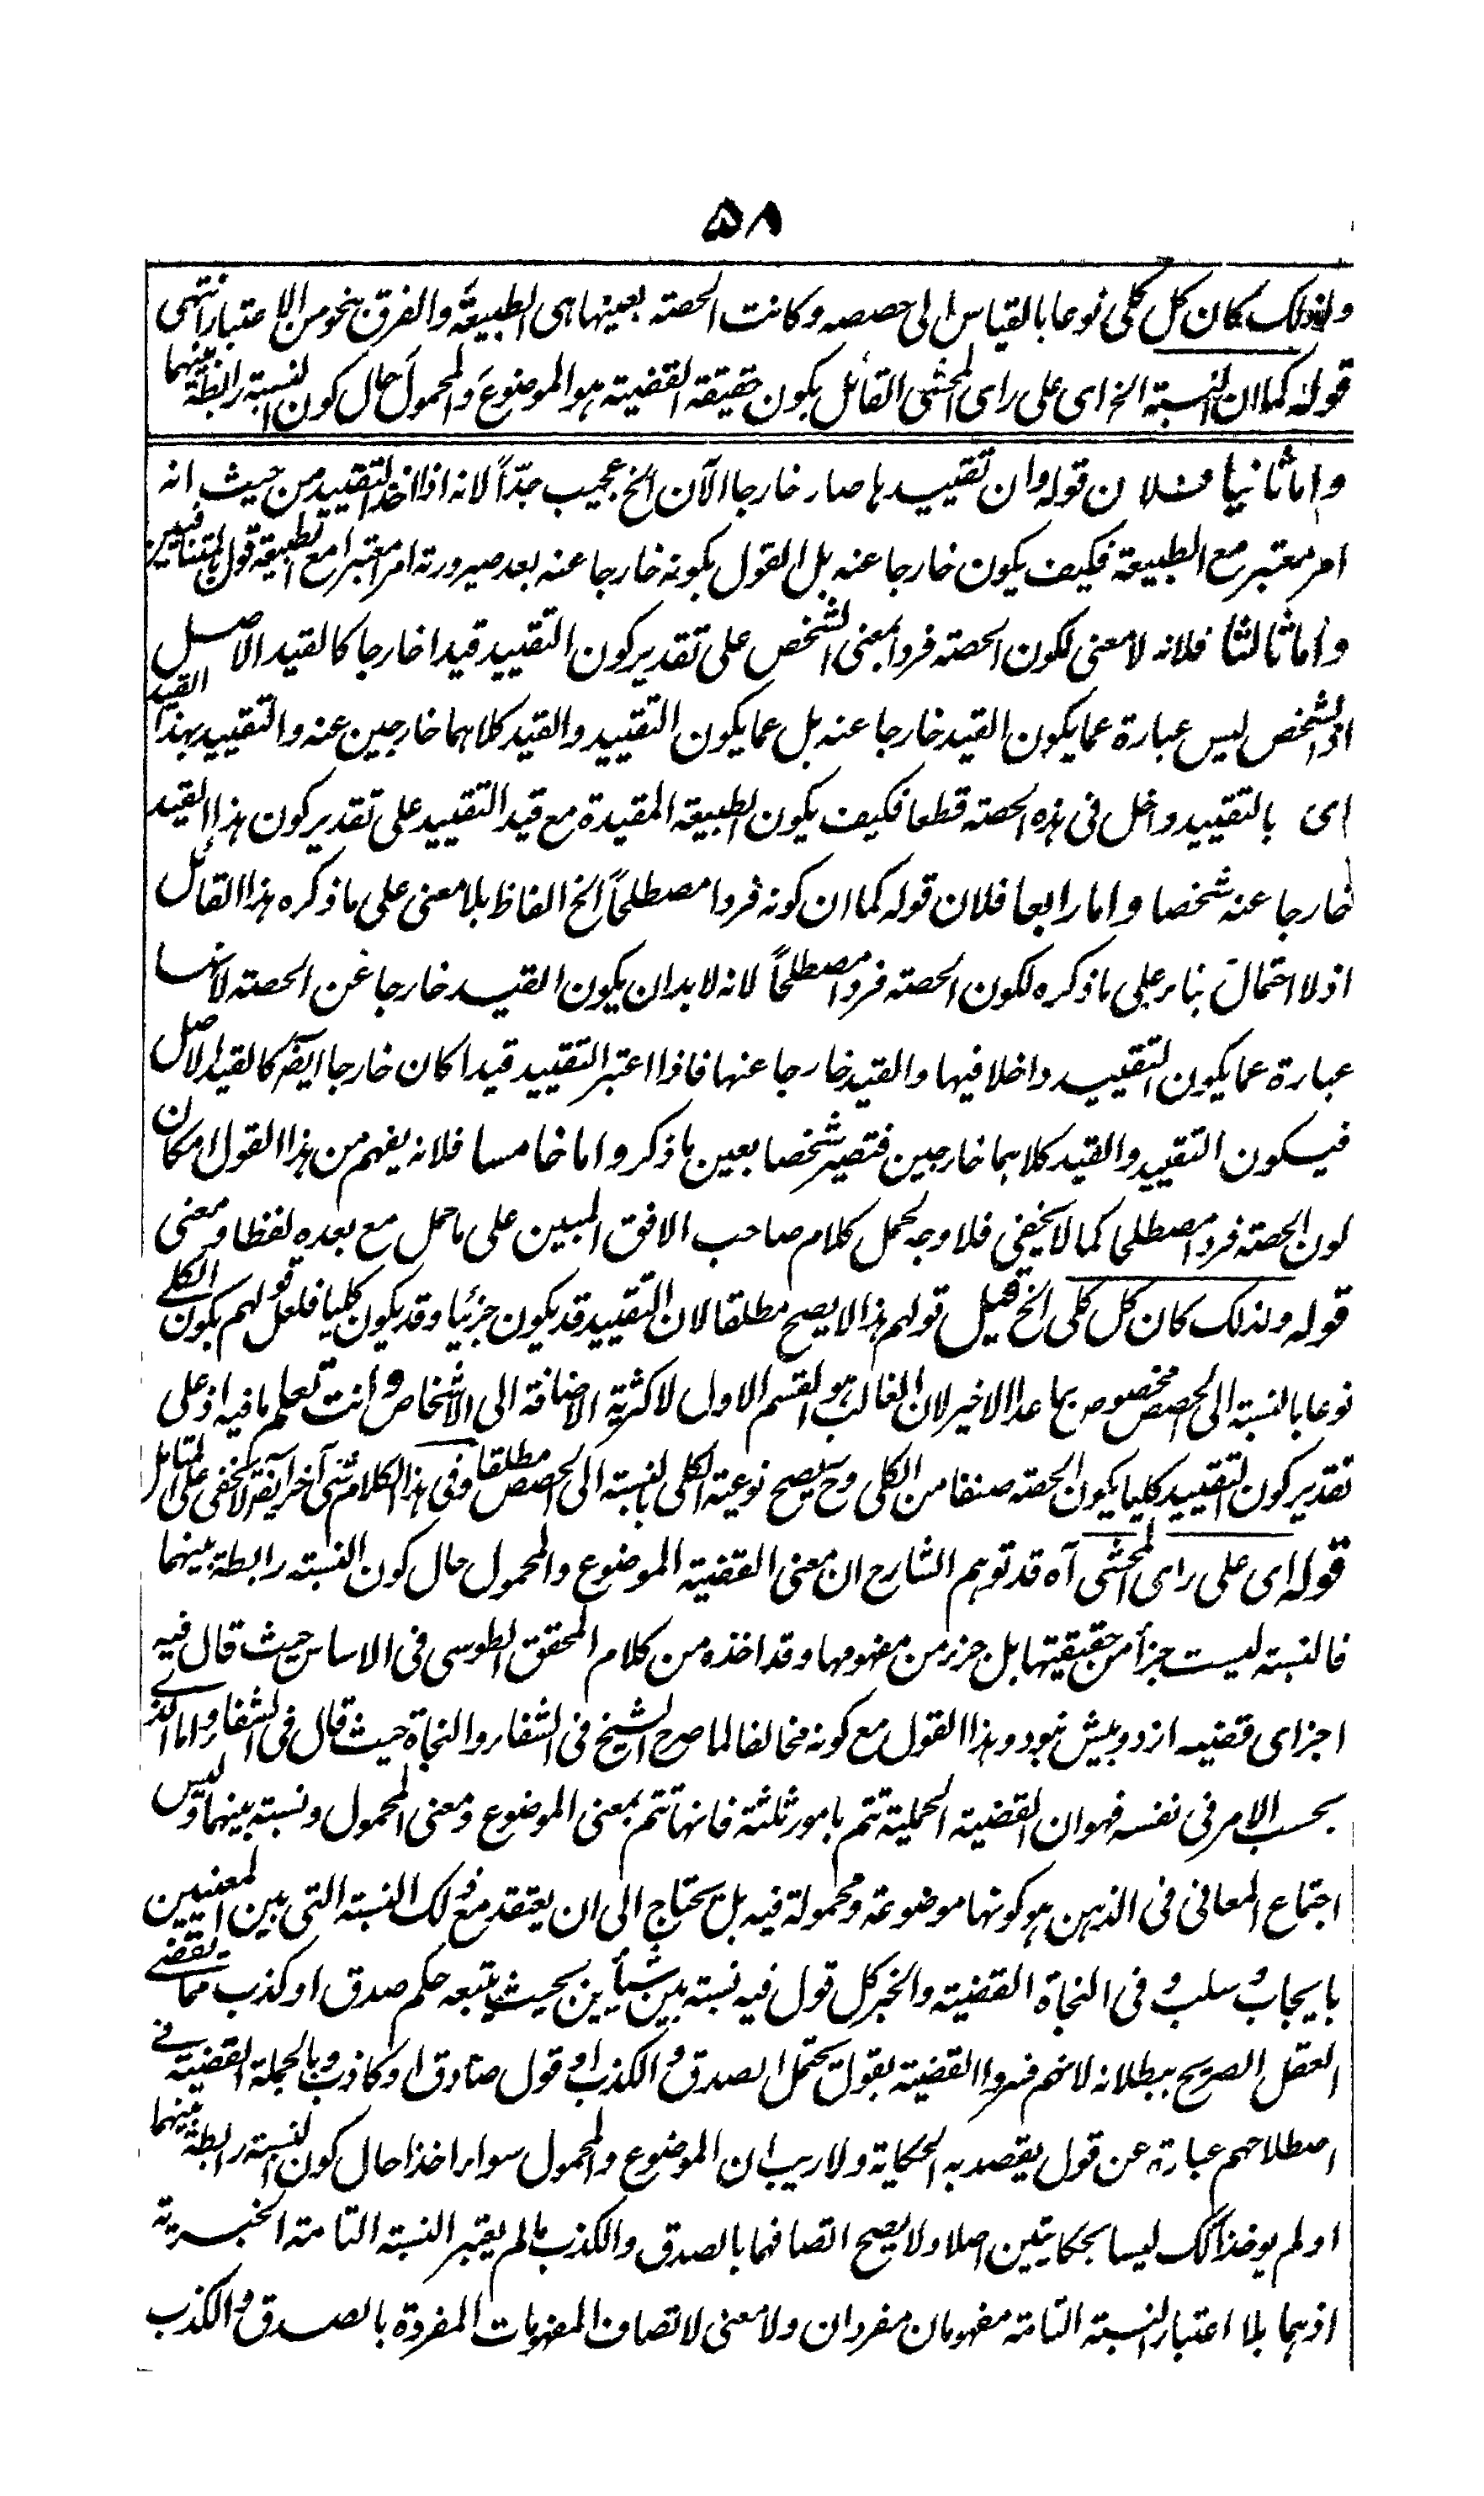 ۵۸
ولذلك كان كل كلى نوعا بالقياس الى حصصه وكانت الحصته بعينها هى الطبيعة والفرق بنحو من الاعتبار انتهى
قوله كما ان النسبة الخ اى على راى المحشى القائل بكون حقيقة القضية هو الموضوع والمحمول حال كون النسبة رابطة بينهما
واما ثانيا فلان قوله وان تقييدها صار خارجا الآن الخ عجيب جدّاً لانه اذا اخذ التقييد من حيث انه
امر معتبر مع الطبيعة فكيف يكون خارجا عنه بل القول بكونه خارجا عنه بعد صيرورته امرا معتبرا مع الطبيعة قول بالمتنافيين
واما ثالثا فلانه لا معنى لكون الحصته فردا بمعنى الشخص على تقدير كون التقييد قيدا خارجا كالقيد الاصل
اذ الشخص ليس عبارة عما يكون القيد خارجا عنه بل عما يكون التقييد والقيد كلاهما خارجين عنه والتقييد بهذا القيد
اى بالتقييد داخل فى هذه الحصته قطعا فكيف يكون الطبيعة المقيدة مع قيد التقييد على تقدير كون هذا القيد
خارجا عنه شخصا واما رابعا فلان قوله كما ان كونه فردا مصطلحاً الخ الفاظ بلا معنى على ما ذكره هذا القائل
اذ لا احتمال بناء على ما ذكره لكون الحصته فردا مصطلحاً لانه لا بد ان يكون القيد خارجا عن الحصته لانها
عبارة عما يكون التقييد داخلا فيها والقيد خارجا عنها فاذا اعتبر التقييد قيدا كان خارجا ايضا كالقيد الاصل
فيكون التقييد والقيد كلاهما خارجين فتصير شخصا بعين ما ذكر واما خامسا فلانه يفهم من هذا القول امكان
كون الحصته فردا مصطلحا كما لا يخفى فلا وجه لحمل كلام صاحب الافق المبين على ما حمل مع بعده لفظا ومعنى
قوله ولذلك كان كل كلى الخ قيل قولهم هذا لا يصح مطلقا لان التقييد قد يكون جزئيا وقد يكون كليا فلعل قولهم بكون الكلى
نوعا بالنسبة الى الحصص مخصوص بما عدا الاخير لان الغالب هو القسم الاول لاكثرية الاضافة الى الاشخاص وانت تعلم ما فيه اذ على
تقدير كون التقييد كليا يكون الحصته صنفا من الكلى وح يصح نوعية الكلى بالنسبة الى الحصص مطلقا وفى هذا الكلام شئ آخر ايضا لا يخفى على المتامل
قوله اى على راى المحشى آه قد توهم الشارح ان معنى القضية الموضوع والمحمول حال كون النسبة رابطة بينهما
فالنسبة ليست جزأ من حقيقتها بل جزء من مفهومها وقد اخذه من كلام المحقق الطوسى فى الاساس حيث قال فيه
اجزاى قضيه از دو بيش نبود وهذا القول مع كونه مخالفا لما صرح الشيخ فى الشفاء والنجاة حيث قال فى الشفاء واما الذى
بحسب الامر فى نفسه فهو ان القضية الحملية تتم بامور ثلثة فانها تتم بمعنى الموضوع ومعنى المحمول ونسبة بينهما وليس
اجتماع المعانى فى الذهن هو كونها موضوعة ومحمولة فيه بل يحتاج الى ان يعتقد مع ذلك النسبة التى بين المعنيين
بايجاب وسلب وفى النجاة القضية والخبر كل قول فيه نسبة بين شيأين بحيث يتبعه حكم صدق او كذب مما يقضى
العقل الصريح ببطلانه لانهم فسروا القضية بقول يحتمل الصدق والكذب او قول صادق او كاذب وبالجملة القضية فى
اصطلاحهم عبارة عن قول يقصد به الحكاية ولا ريب ان الموضوع والمحمول سواء اخذا حال كون النسبة رابطة بينهما
او لم يوخذا كذلك ليسا بحكايتين اصلا ولا يصح اتصافهما بالصدق والكذب ما لم يعتبر النسبة التامة الخبرية
اذ هما بلا اعتبار النسبة التامة مفهومان مفردان ولا معنى لاتصاف المفهومات المفردة بالصدق والكذب